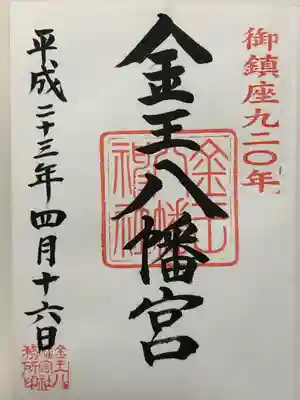 御鎮座九二〇年
金王八幡宮
金王八幡神社
平成二十三年四月十六日
金王八幡宮社務所印